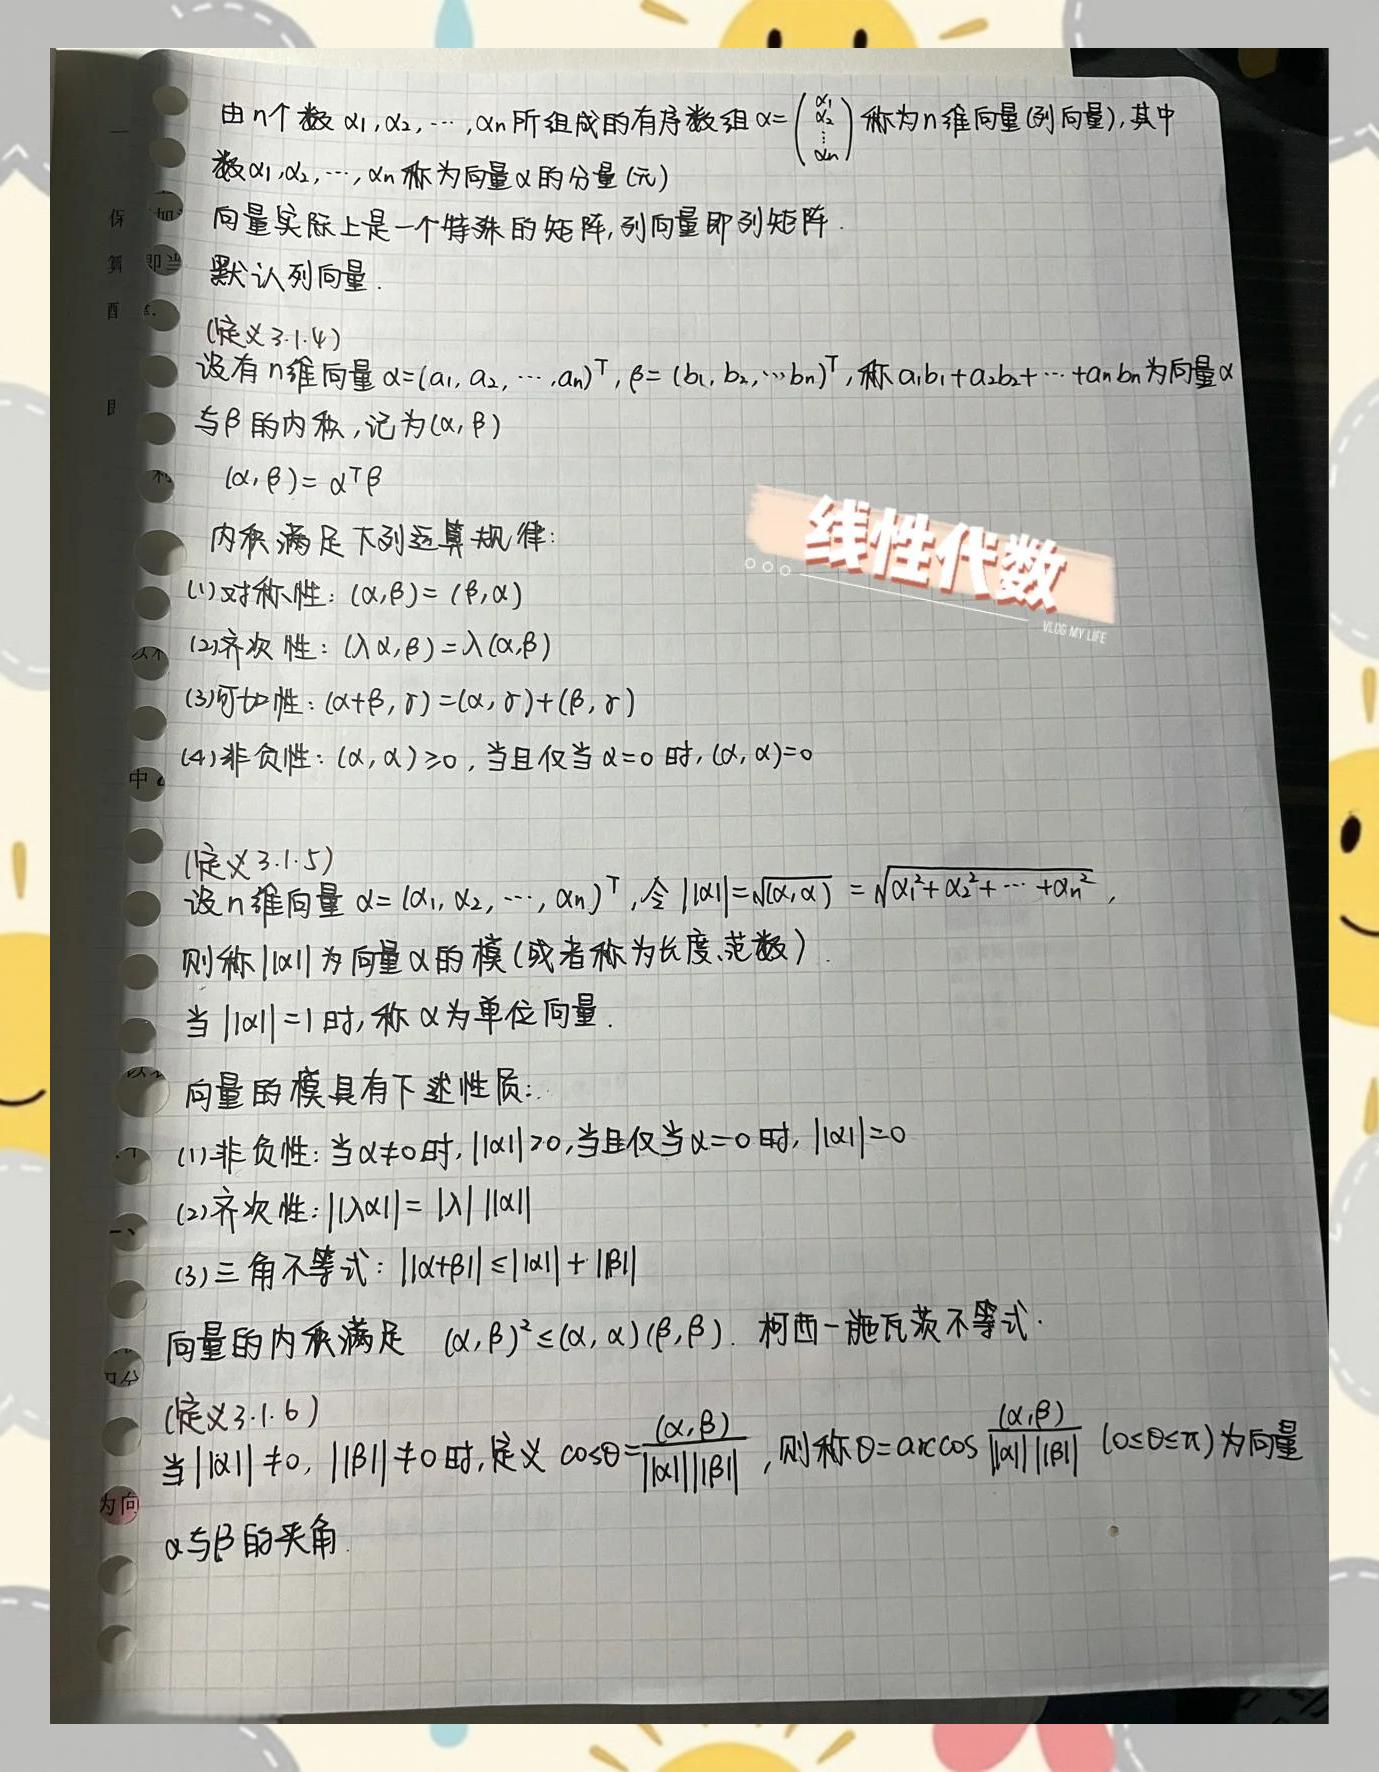 由n个数 α₁,α₂,…,αn 所组成的有序数组 α=(α₁ α₂ ⋮ αn) 称为n维向量(列向量),其中
数α₁,α₂,…,αn 称为向量α的分量(元)
向量实际上是一个特殊的矩阵,列向量即列矩阵.
默认列向量.
(定义3.1.4)
设有n维向量 α=(a₁, a₂, …,an)ᵀ, β=(b₁, b₂,…bn)ᵀ,称 a₁b₁+a₂b₂+…+anbn 为向量α
与β的内积,记为(α,β)
(α,β)=αᵀβ
内积满足下列运算规律:
(1)对称性: (α,β)=(β,α)
(2)齐次性: (λα,β)=λ(α,β)
(3)可加性: (α+β,γ)=(α,γ)+(β,γ)
(4)非负性: (α,α)≥0, 当且仅当 α=0 时, (α,α)=0
线性代数
VLOG MY LIFE
(定义3.1.5)
设n维向量 α=(α₁, α₂, …, αn)ᵀ,令 ||α||=√(α,α) = √α₁²+α₂²+…+αn²,
则称||α||为向量α的模(或者称为长度、范数).
当 ||α||=1 时,称 α为单位向量.
向量的模具有下述性质:
(1)非负性: 当α≠0时, ||α||>0,当且仅当α=0时, ||α||=0
(2)齐次性: ||λα||= |λ| ||α||
(3)三角不等式: ||α+β||≤||α||+||β||
向量的内积满足 (α,β)²≤(α,α)(β,β). 柯西-施瓦茨不等式.
(定义3.1.6)
当||α||≠0, ||β||≠0时,定义 cosθ=(α,β)/||α||||β||, 则称θ=arccos (α,β)/||α||||β|| (0≤θ≤π)为向量
α与β的夹角.
保
算
即当
配
中
为向